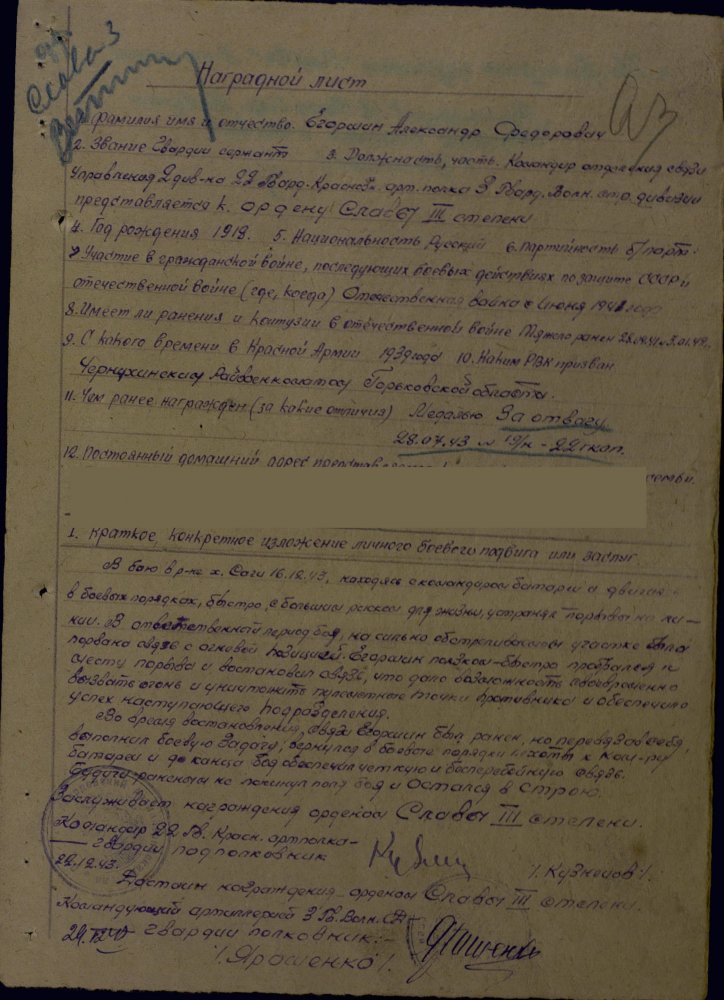 Слава 3
Наградной лист
Фамилия имя и отчество. Егоршин Александр Федорович
2. Звание Гвардии сержант 3. Должность, часть. Командир отделения связи
управления 2 див-на 22 Гвард. Красноз. арт. полка 3 Гвард. Волн. стр. дивизии
представляется к. ордену Славы III степени
4. Год рождения 1919. 5. Национальность Русский 6. Партийность б/парт.
7. Участие в гражданской войне, последующих боевых действиях по защите СССР и
отечественной войне (где, когда) Отечественная война с июня 1941 года
8. Имеет ли ранения и контузии в отечественной войне Тяжело ранен
9. С какого времени в Красной Армии 1939 года 10. Каким РВК призван
Чернухинским Райвоенкоматом Горьковской области.
11. Чем ранее награжден (за какие отличия) Медалью За отвагу
28.07.43 г.
12. Постоянный домашний адрес
1. Краткое, конкретное изложение личного боевого подвига или заслуг
В бою в р-не х. Саги 16.12.43, находясь с командиром батареи
в боевых порядках, быстро, с большим риском для жизни, устранял порывы на ли-
нии. В ответственный период боя, на сильно обстреливаемом участке была
порвана связь с огневой позицией. Егоршин ползком быстро пробрался к
месту порыва и востановил связь, что дало возможность своевременно
вызвать огонь и уничтожить пулеметные точки противника и обеспечило
успех наступающего подразделения.
Во время востановления, связи Егоршин был ранен, но перевязав себя,
выполнил боевую задачу, вернулся в боевые порядки пехоты к ком-ру
батареи и до конца боя обеспечил четкую и бесперебойную связь.
Будучи раненым не покинул поля боя и остался в строю.
Заслуживает награждения орденом Славы III степени.
Командир 22 Гв. Красн. артполка-
гвардии подполковник /. Кузнецов /.
22.12.43.
Достоин награждения орденом Славы III степени.
Командующий артиллерией 3 Гв. Волн. СД -
гвардии полковник: -
/. Ярошенко /.